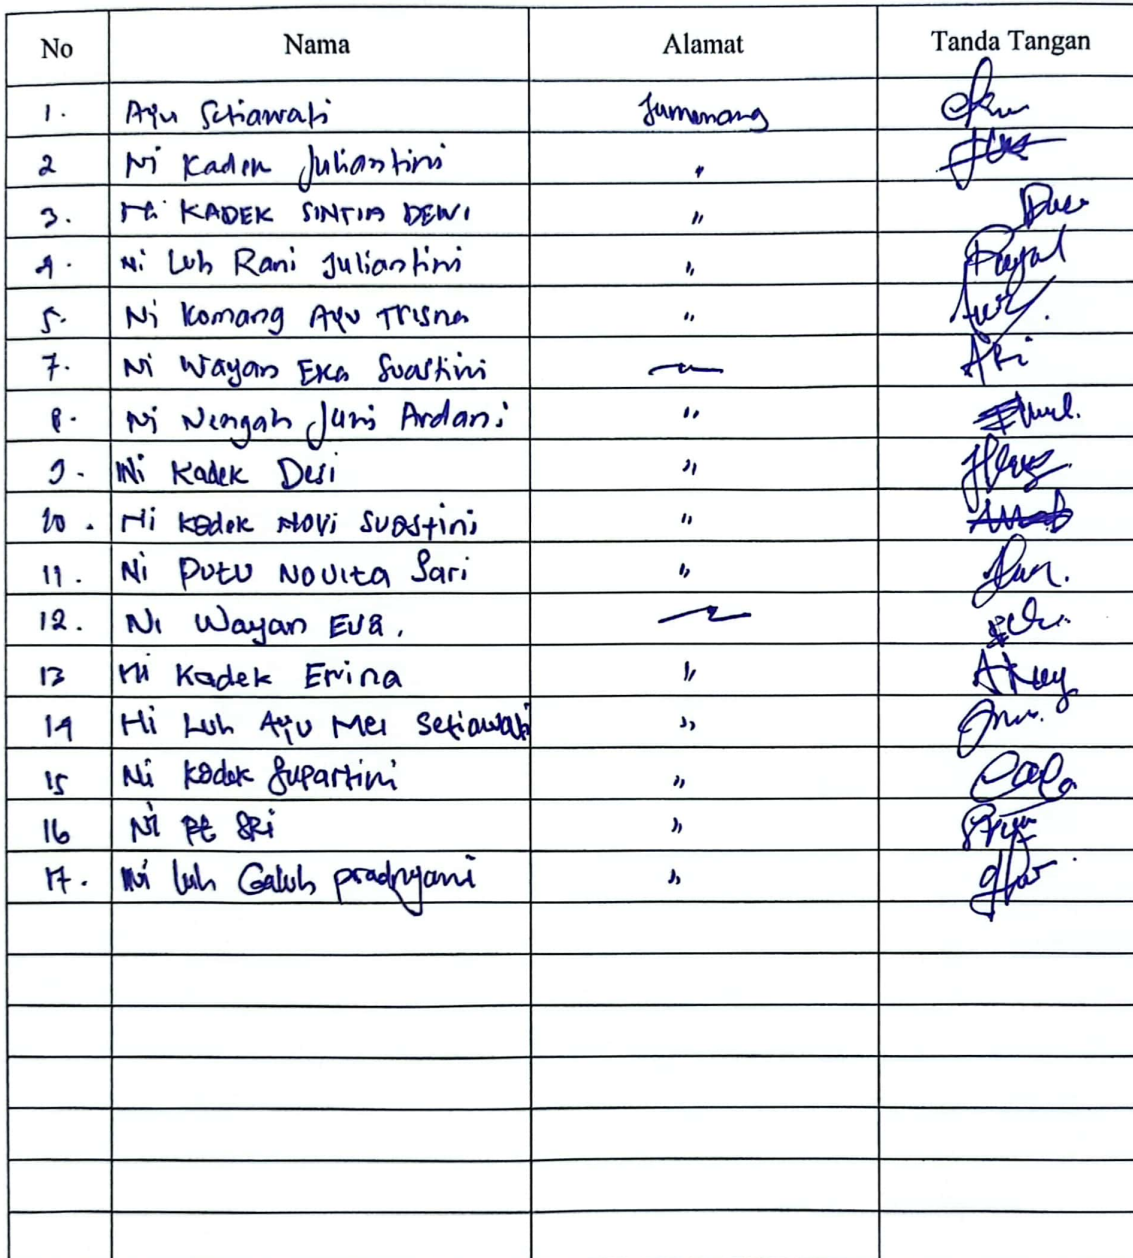 No Nama Alamat Tanda Tangan
1. Ayu Setiawati Jumenang
2 Ni Kadek Juliantini "
3. Ni KADEK SINTIA DEWI "
4. Ni Luh Rani Juliantini "
5. Ni Komang Ayu Trisna "
7. Ni Wayan Eka Suastini
8. Ni Nengah Juni Ardani "
9. Ni Kadek Desi "
10. Ni Kadek Novi Suastini "
11. Ni Putu Novita Sari "
12. Ni Wayan Eva.
13 Ni Kadek Erina "
14 Ni Luh Ayu Mei Setiawati "
15 Ni Kadek Supartini "
16 Ni Pt SRi "
17. Ni Luh Galuh pradnyani "